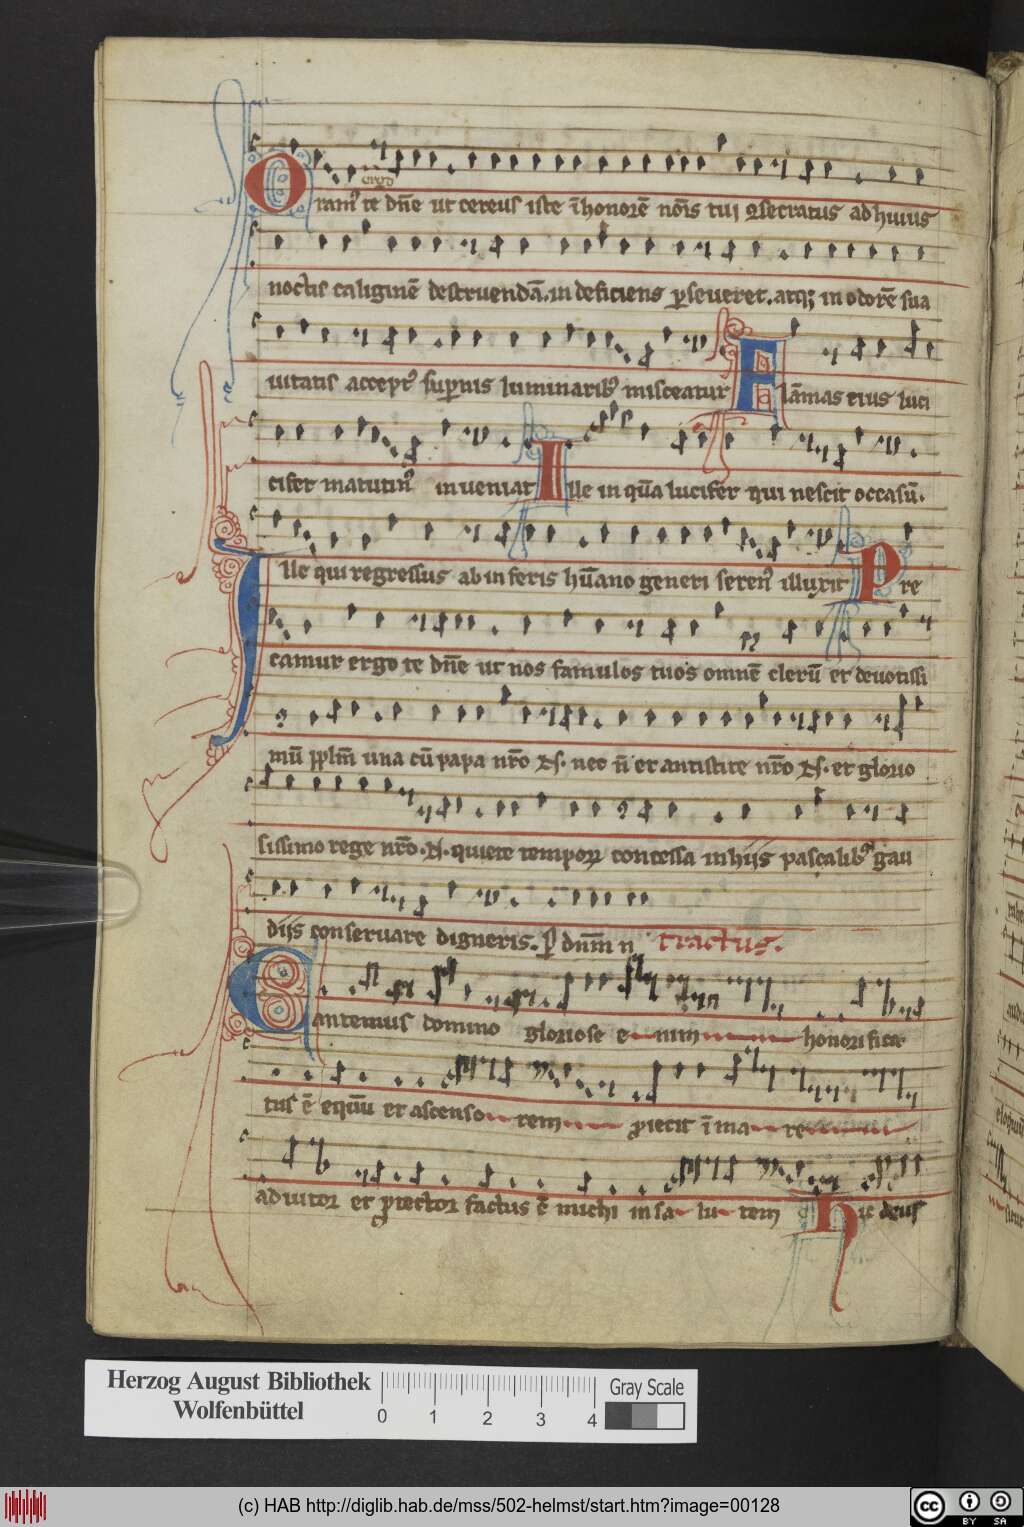 ergo
Oram᷒ te dn̄e ut cereus iste ī honorē noīs tui ꝯsecratus ad huius
noctis caliginē destruendā. in deficiens ꝑseueret. atq; in odorē sua
uitatis accept᷒ suꝑnis luminarib᷒ misceatur Flāmas eius luci
cifer matutin᷒ inueniat Ille in quā lucifer qui nescit occasū.
Ille qui regressus ab inferis hūano generi seren᷒ illuxit Pre
camur ergo te dn̄e ut nos famulos tuos omnē clerū et deuotissi
mū pplm̄ una cū papa nr̄o N. nec n̄ et antistite nr̄o N. et glorio
sissimo rege nr̄o. N. quiete tempoꝝ concessa in hijs pascalib᷒ gau
dijs conseruare digneris. ꝑ dnm̄ n tractus.
Cantemus domino gloriose enim honorifica
tus ē equū et ascensorem ꝓiecit ī mare
adiutor et ꝓtector factus ē michi in salutem hic deus
Herzog August Bibliothek
Wolfenbüttel
0 1 2 3 4
Gray Scale
(c) HAB http://diglib.hab.de/mss/502-helmst/start.htm?image=00128
cc BY SA